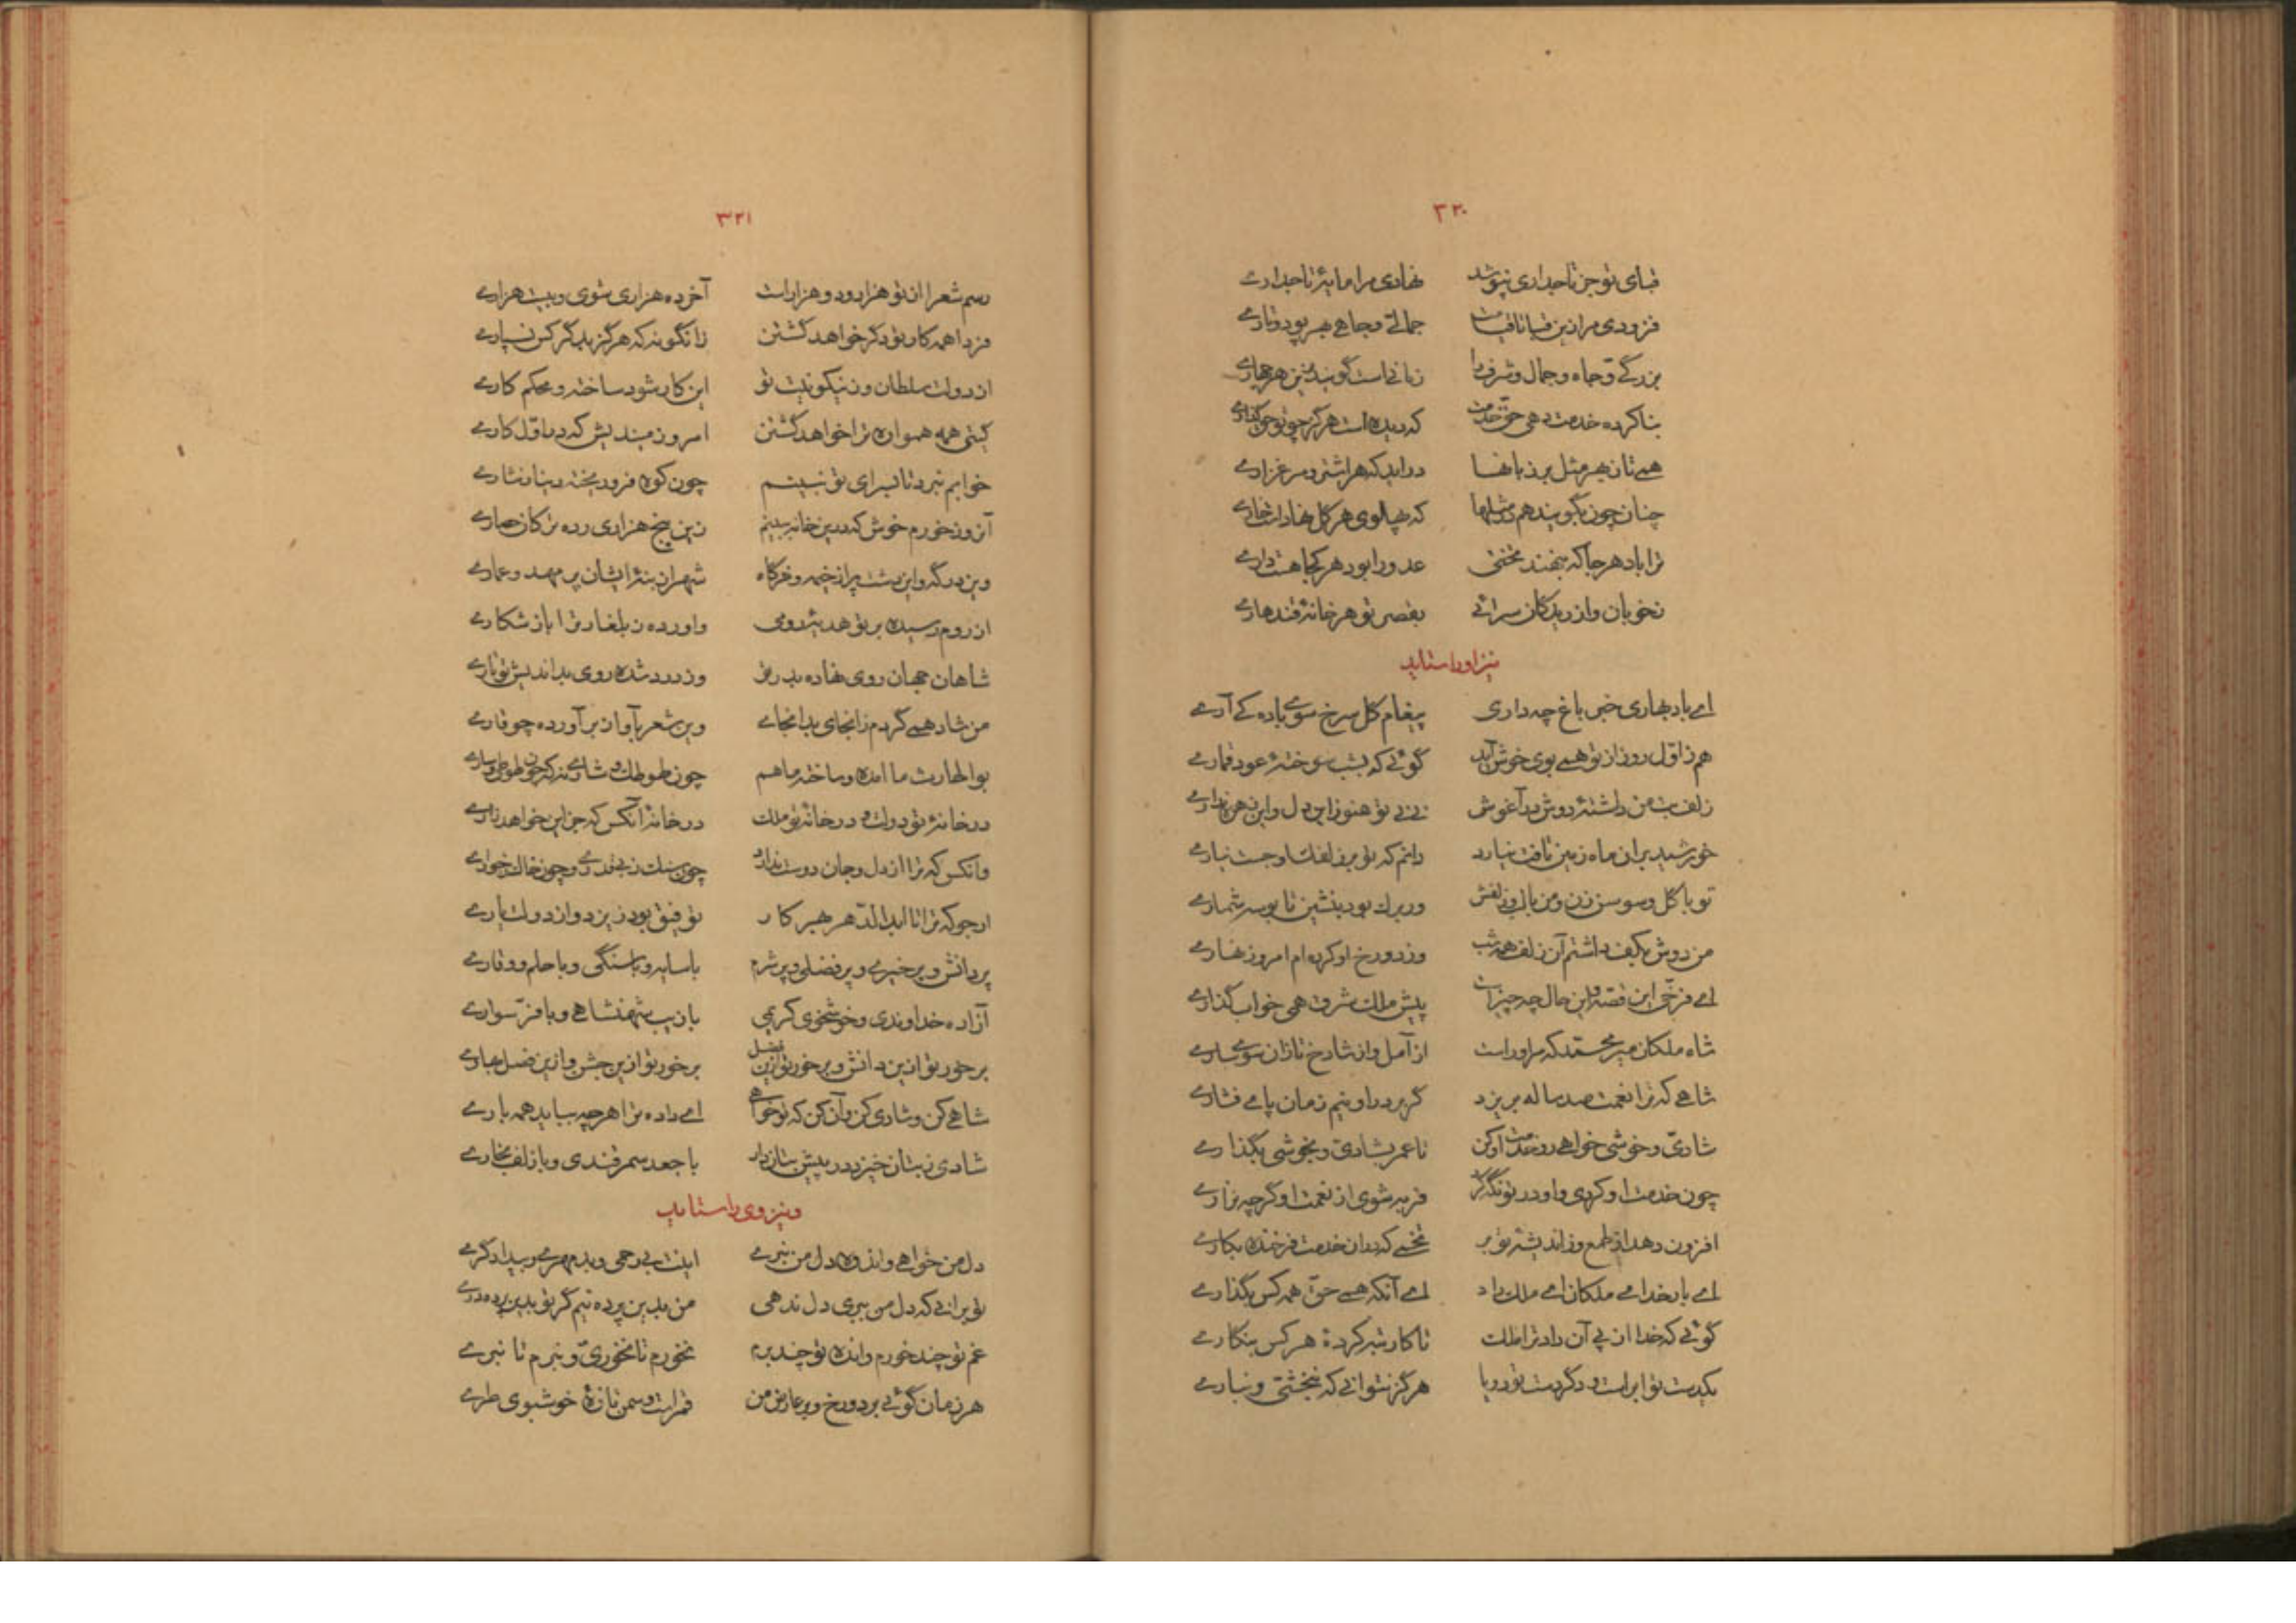 ۳۲۰
قبای تو جز تاجداری نپوشد نهادی مرا مایهٔ تاجداری
فزودی مرا زین قبا تا قیامت جمالی و جاهی بهر پود و تاری
بزرگی و جاه و جمال و شرف را زبانی است گویند
بنا کرده خدمت دهی حق خدمت که دیده است هرگز چو تو حق گذاری
همی تا زنهر مثل بر زبانها درآید که هر اشتر و مرغزاری
چنان چون بگویند هم در مثلها که پهلوی هر گل نهادست خاری
ترا باد هر جا که بخشند تختی عدو را بود هر کجا هست داری
نخوبان و از ریدکان سرائی بقصر تو هر خانهٔ قندهاری
نیز او را ستاید
ای باد بهاری خبر باغ چه داری پیغام گل سرخ سوی باده کی آری
هم زاول روز از تو همی بوی خوش آید گوئی که بشب سوختهٔ عود قماری
زلف بت من داشتهٔ دوش در آغوش نی نی تو هنوز این دل و این زهره نداری
خورشید بران ماه زمین تافت نیارد دانم که تو بر زلفک او جست نیاری
تو با گل و سوسن زن و من با لب و زلفش ور برک بود بنشین تا بوسه شماری
من دوش بکف داشتم آن زلف همه شب وز دو رخ او کرده ام امروز نهاری
ای فرخی این قصه و این حال چه چیزست پیش ملک شرق همی خواب گذاری
شاه ملکان میر محمد که مر او راست از آمل و از شارخ تازان سوی ساری
شاهی که ترا نعمت صد ساله بریزد گر بر در او نیم زمان پای فشاری
شادی و خوشی خواهی رو خدمت او کن تا عمر بشادی و بخوشی بگذاری
چون خدمت او کردی و او در تو نگه کرد فربه شوی از نعمت او گرچه نزاری
افزون دهد از طمع و از اندیشهٔ تو بر نخمی که در آن خدمت فرخنده بکاری
ای بار خدای ملکان ای ملک راد ای آنکه همی حق همه کس بگذاری
گوئی که خدا از پی آن داد ترا ملک تا کار تبه کردهٔ هر کس بنگاری
یکدست تو ابر است و دگر دست تو دریا هرگز نتوانی که نبخشی و نباری
۳۲۱
رسم شعرا از تو هزار و دو هزار است آخر ده هزاری شوی و بیست هزاری
فردا همه کار تو دگر خواهد گشتن زانگونه که هرگز بدگر کس نسپاری
از دولت سلطان و ز نیکو نیت تو این کار شود ساخته و محکم کاری
گیتی همه هموار ترا خواهد گشتن امروز مبندیش که در اول کاری
خوابم نبرد تا بسرای تو نبینم چون کوه فرو ریخته دینار نثاری
آنروز خورم خوش که درین خانه ببینم زین پنج هزاری رده ترکان حصاری
وین درگه و این دشت پر از خیمه و خرگاه شهر از بنهٔ ایشان پر مهد و عماری
از روم رسیده بر تو هدیهٔ رومی واورده ز بلغار ترا باز شکاری
شاهان جهان روی نهاده بدر تو وز درد شده روی بداندیش تو تاری
من شاد همی گردم زانجای بدانجای وین شعر بآواز برآورده چو قاری
بوالحارث ما آمده و ساخته با هم چون طوطک
در خانهٔ تو دولت و در خانهٔ تو ملک در خانهٔ آنکس که جز این خواهد زاری
وآنکس که ترا از دل و جان دوست ندارد چون سنگ ز بیقدری و چون خاک ز خواری
ارجو که ترا تا ابد الدهر بهر کار توفیق بود زیزد و از دولت یاری
پر دانش و پر خیری و پر فضلی و پر شرم با سایه و با سنگی و با حلم و وقاری
آزاده خداوندی و خوشخوی کریمی با زیب شهنشاهی و با فر سواری
برخور تو ازین دانش و برخور تو ازین فضل برخور تو ازین جشن و ازین فصل بهاری
شاهی کن و شادی کن و آن کن که تو خواهی ای داده ترا هر چه بباید همه باری
شادی ز بتان خیزد و در پیش بتان دار با جعد سمرقندی و با زلف بخاری
و نیز وی را ستاید
دل من خواهی و اندوه دل من نبری اینت بی رحمی و بدمهری و بیدادگری
تو بر آنی که دل من ببری دل ندهی من بدین پرده نیم گر تو بدین پرده دری
غم تو چند خورم و انده تو چند برم نخورم تا نخوری و نبرم تا نبری
هر زمان گوئی بر دو رخ و بر عارض من قمر است و سمن تازهٔ خوشبوی طری